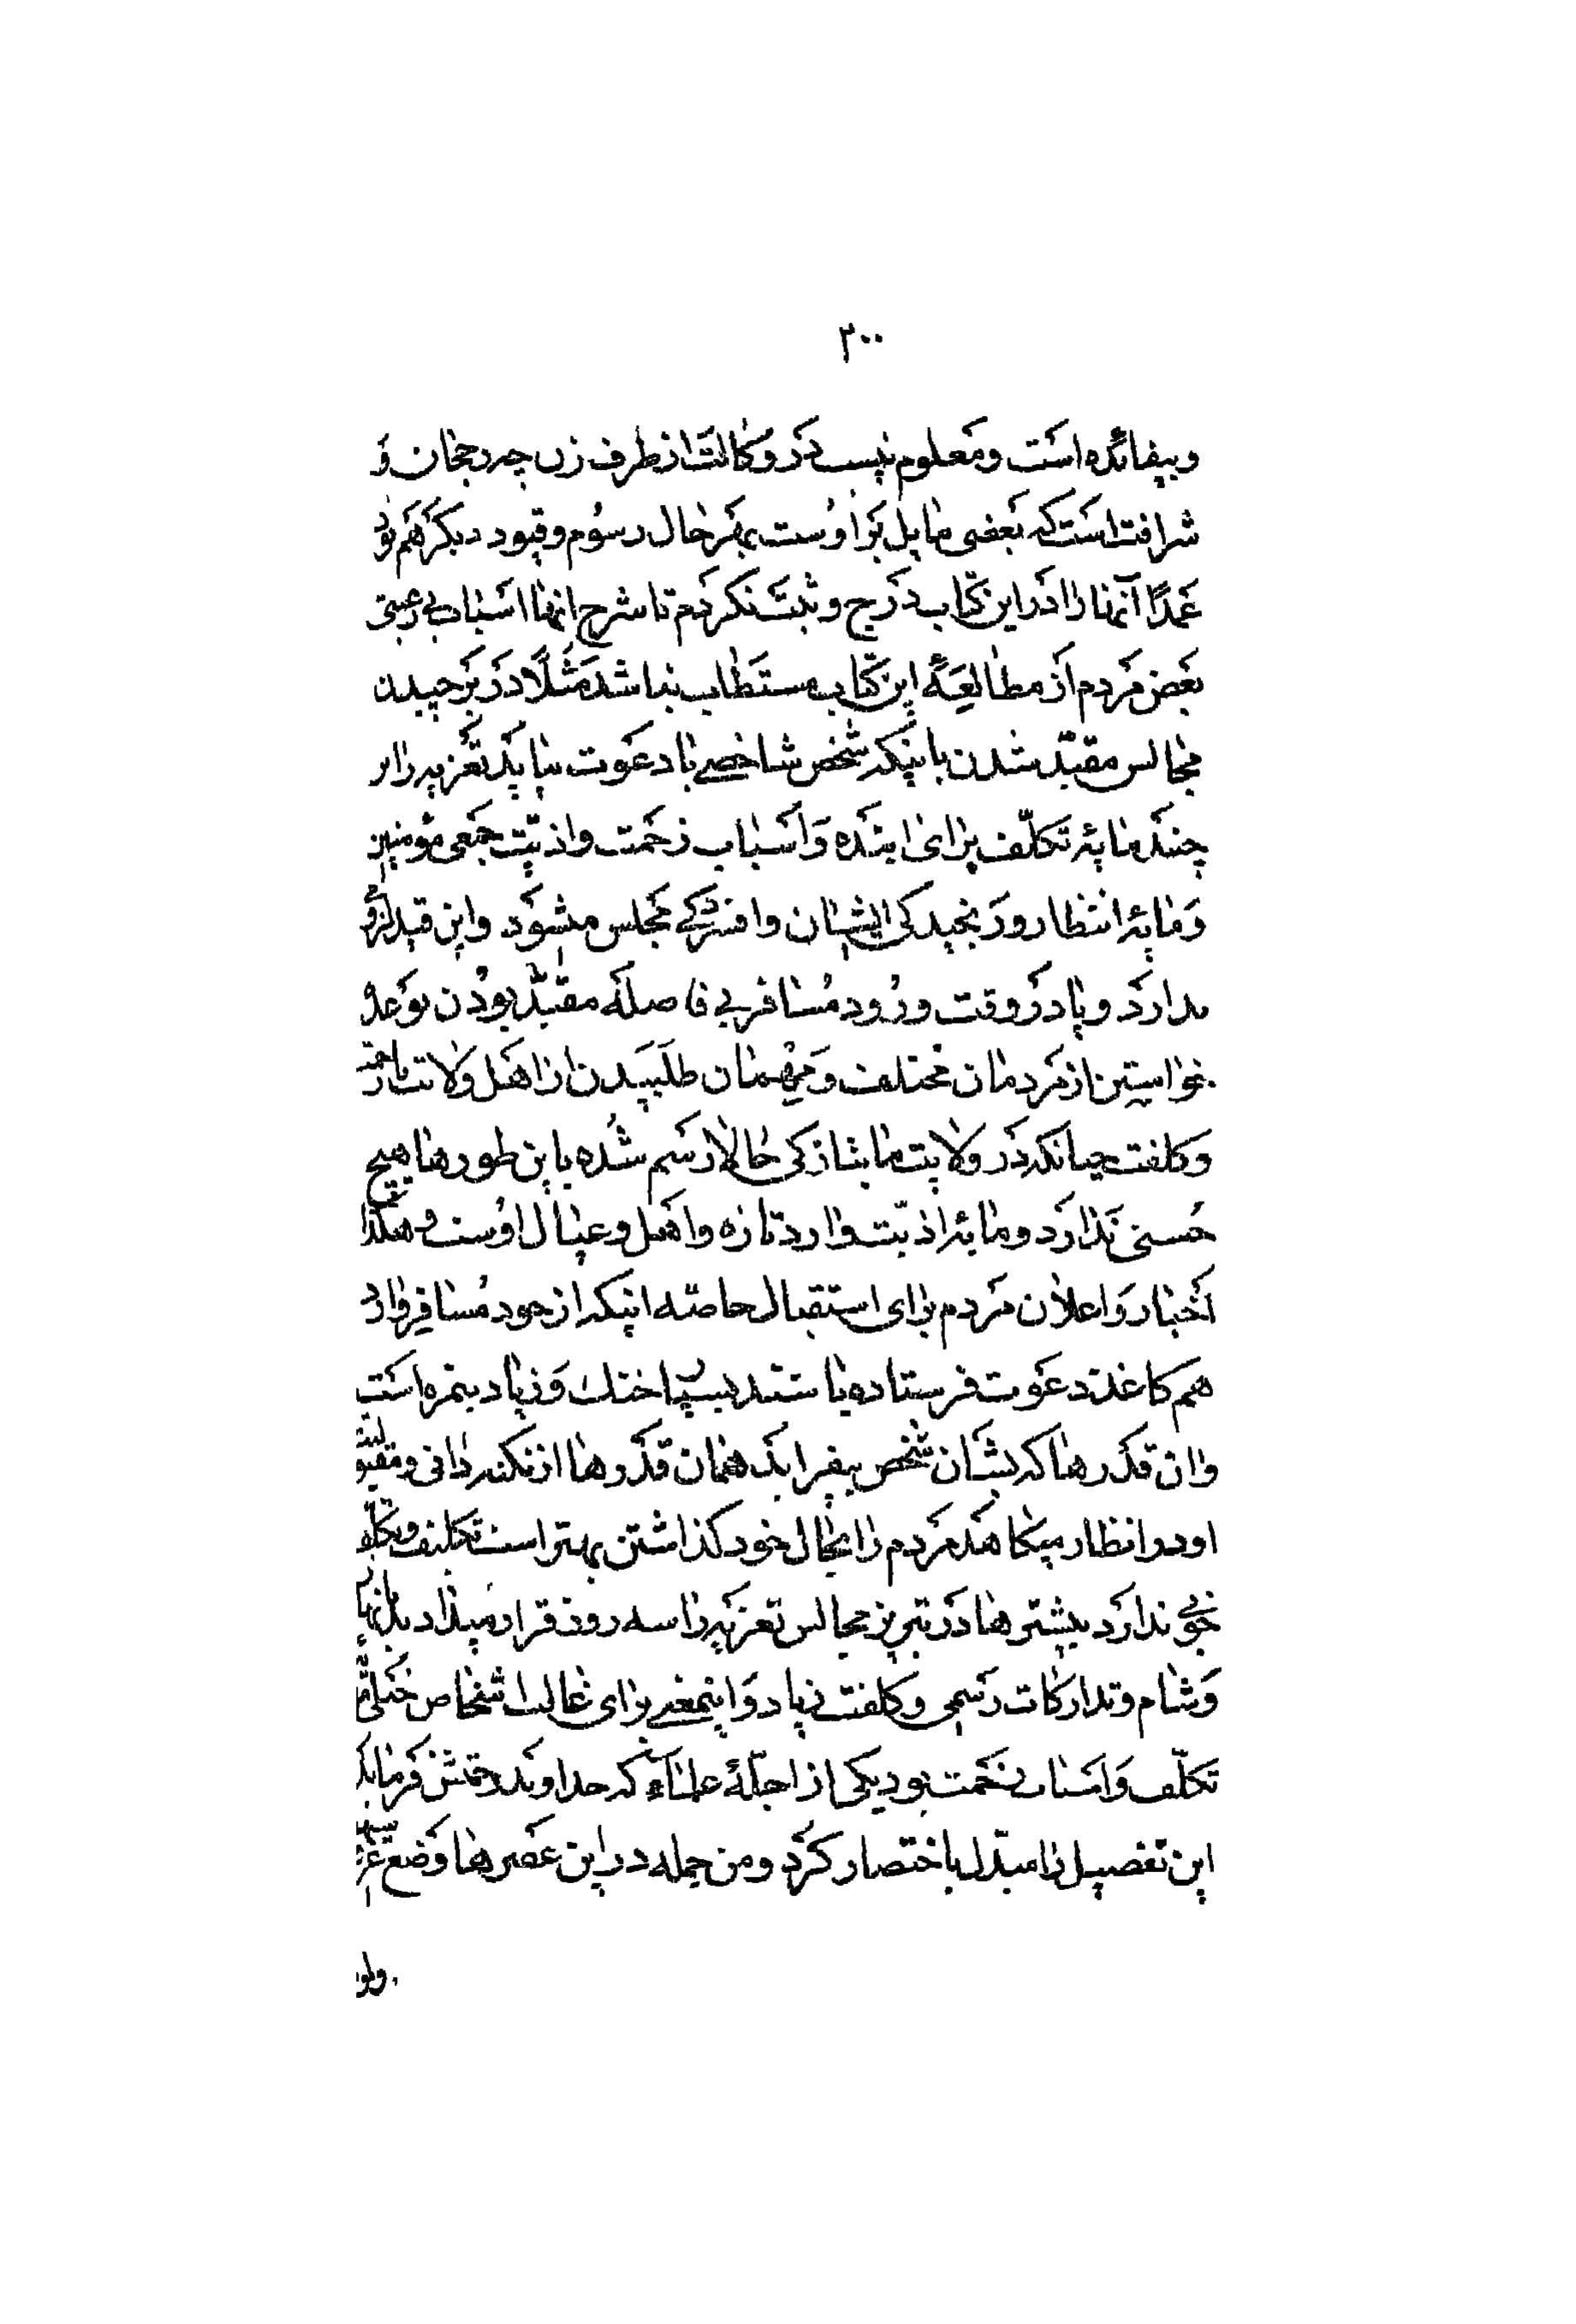 ۲۰۰
و بیفائده است و معلوم نیست در وکالت از طرف زن چه رجحان و
شرافت است که بعضی مایل بر اوست بهر حال رسوم و قیود دیگر هم بود
عمدًا آنها را در این کتاب درج و ثبت نکردم تا شرح انها اسباب بی رغبتی
بعض مردم از مطالعهٔ این کتاب مستطاب نباشد مَثَلًا در برچیدن
مجالس مقیّد شدن باینکه شخص شاخصی با دعوت بیاید تعزیه را
چند مایهٔ تکلّف برای اینده و اسباب زحمت و اذیّت جمعی مؤمنین
و مایهٔ انتظار و رنجیدگی ایشان و افسردگی مجلس میشود و این قید لزومی
ندارد و یا در وقت ورود مسافر بی فاصله مقیّد بودن بوعده
خواستن از مردمان مختلف و مهمان طلبیدن از اهل ولایت با زحمت
و کلفت چنانکه در ولایت ما بتازگی حالا رسم شده باین طورها هیچ
حسنی ندارد و مایهٔ اذیّت وارد تازه و اهل و عیال اوست و هکذا
اخبار و اعلان مردم برای استقبال خاصّه اینکه از خود مسافر وارد
هم کاغذ دعوت فرستاده باشند بسیار خنک و زیاد بیمزه است
و ان قدرها که بشأن شخص بیفزاید همان قدرها از نکته دانی و مقبولیت
او در انظار میکاهد مردم را بحال خود گذاشتن بهتر است تکلیف و تکلّف
خوبی ندارد پیشترها در تبریز مجالس تعزیه را سه روز قرار میدادند با نهار
و شام و تدارکات رسمی و کلفت زیاد و اینمعنی برای غالب اشخاص خیلی
تکلّف و اسباب زحمت بود یکی از اجلّهٔ علماء که خداوند رحمتش فرماید
این تفصیل را مبدّل باختصار کرد و من جمله در این عصرها وضع